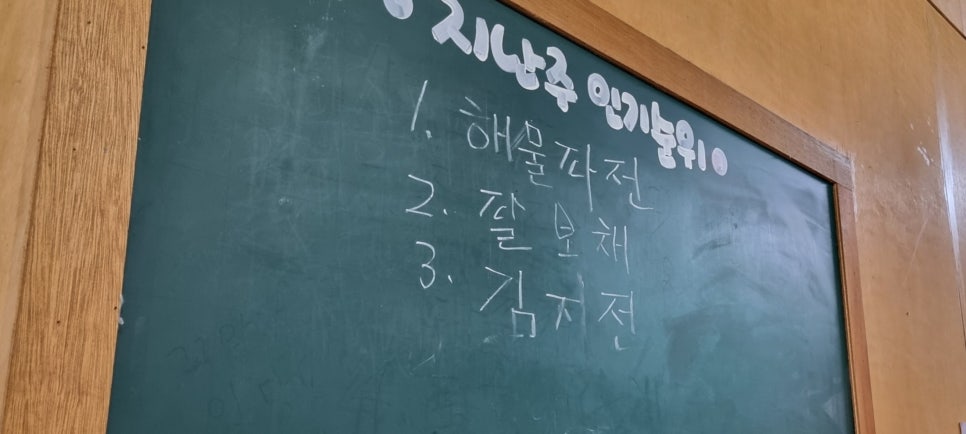 지난주 인기순위!
1. 해물파전
2. 팔보채
3. 김지전